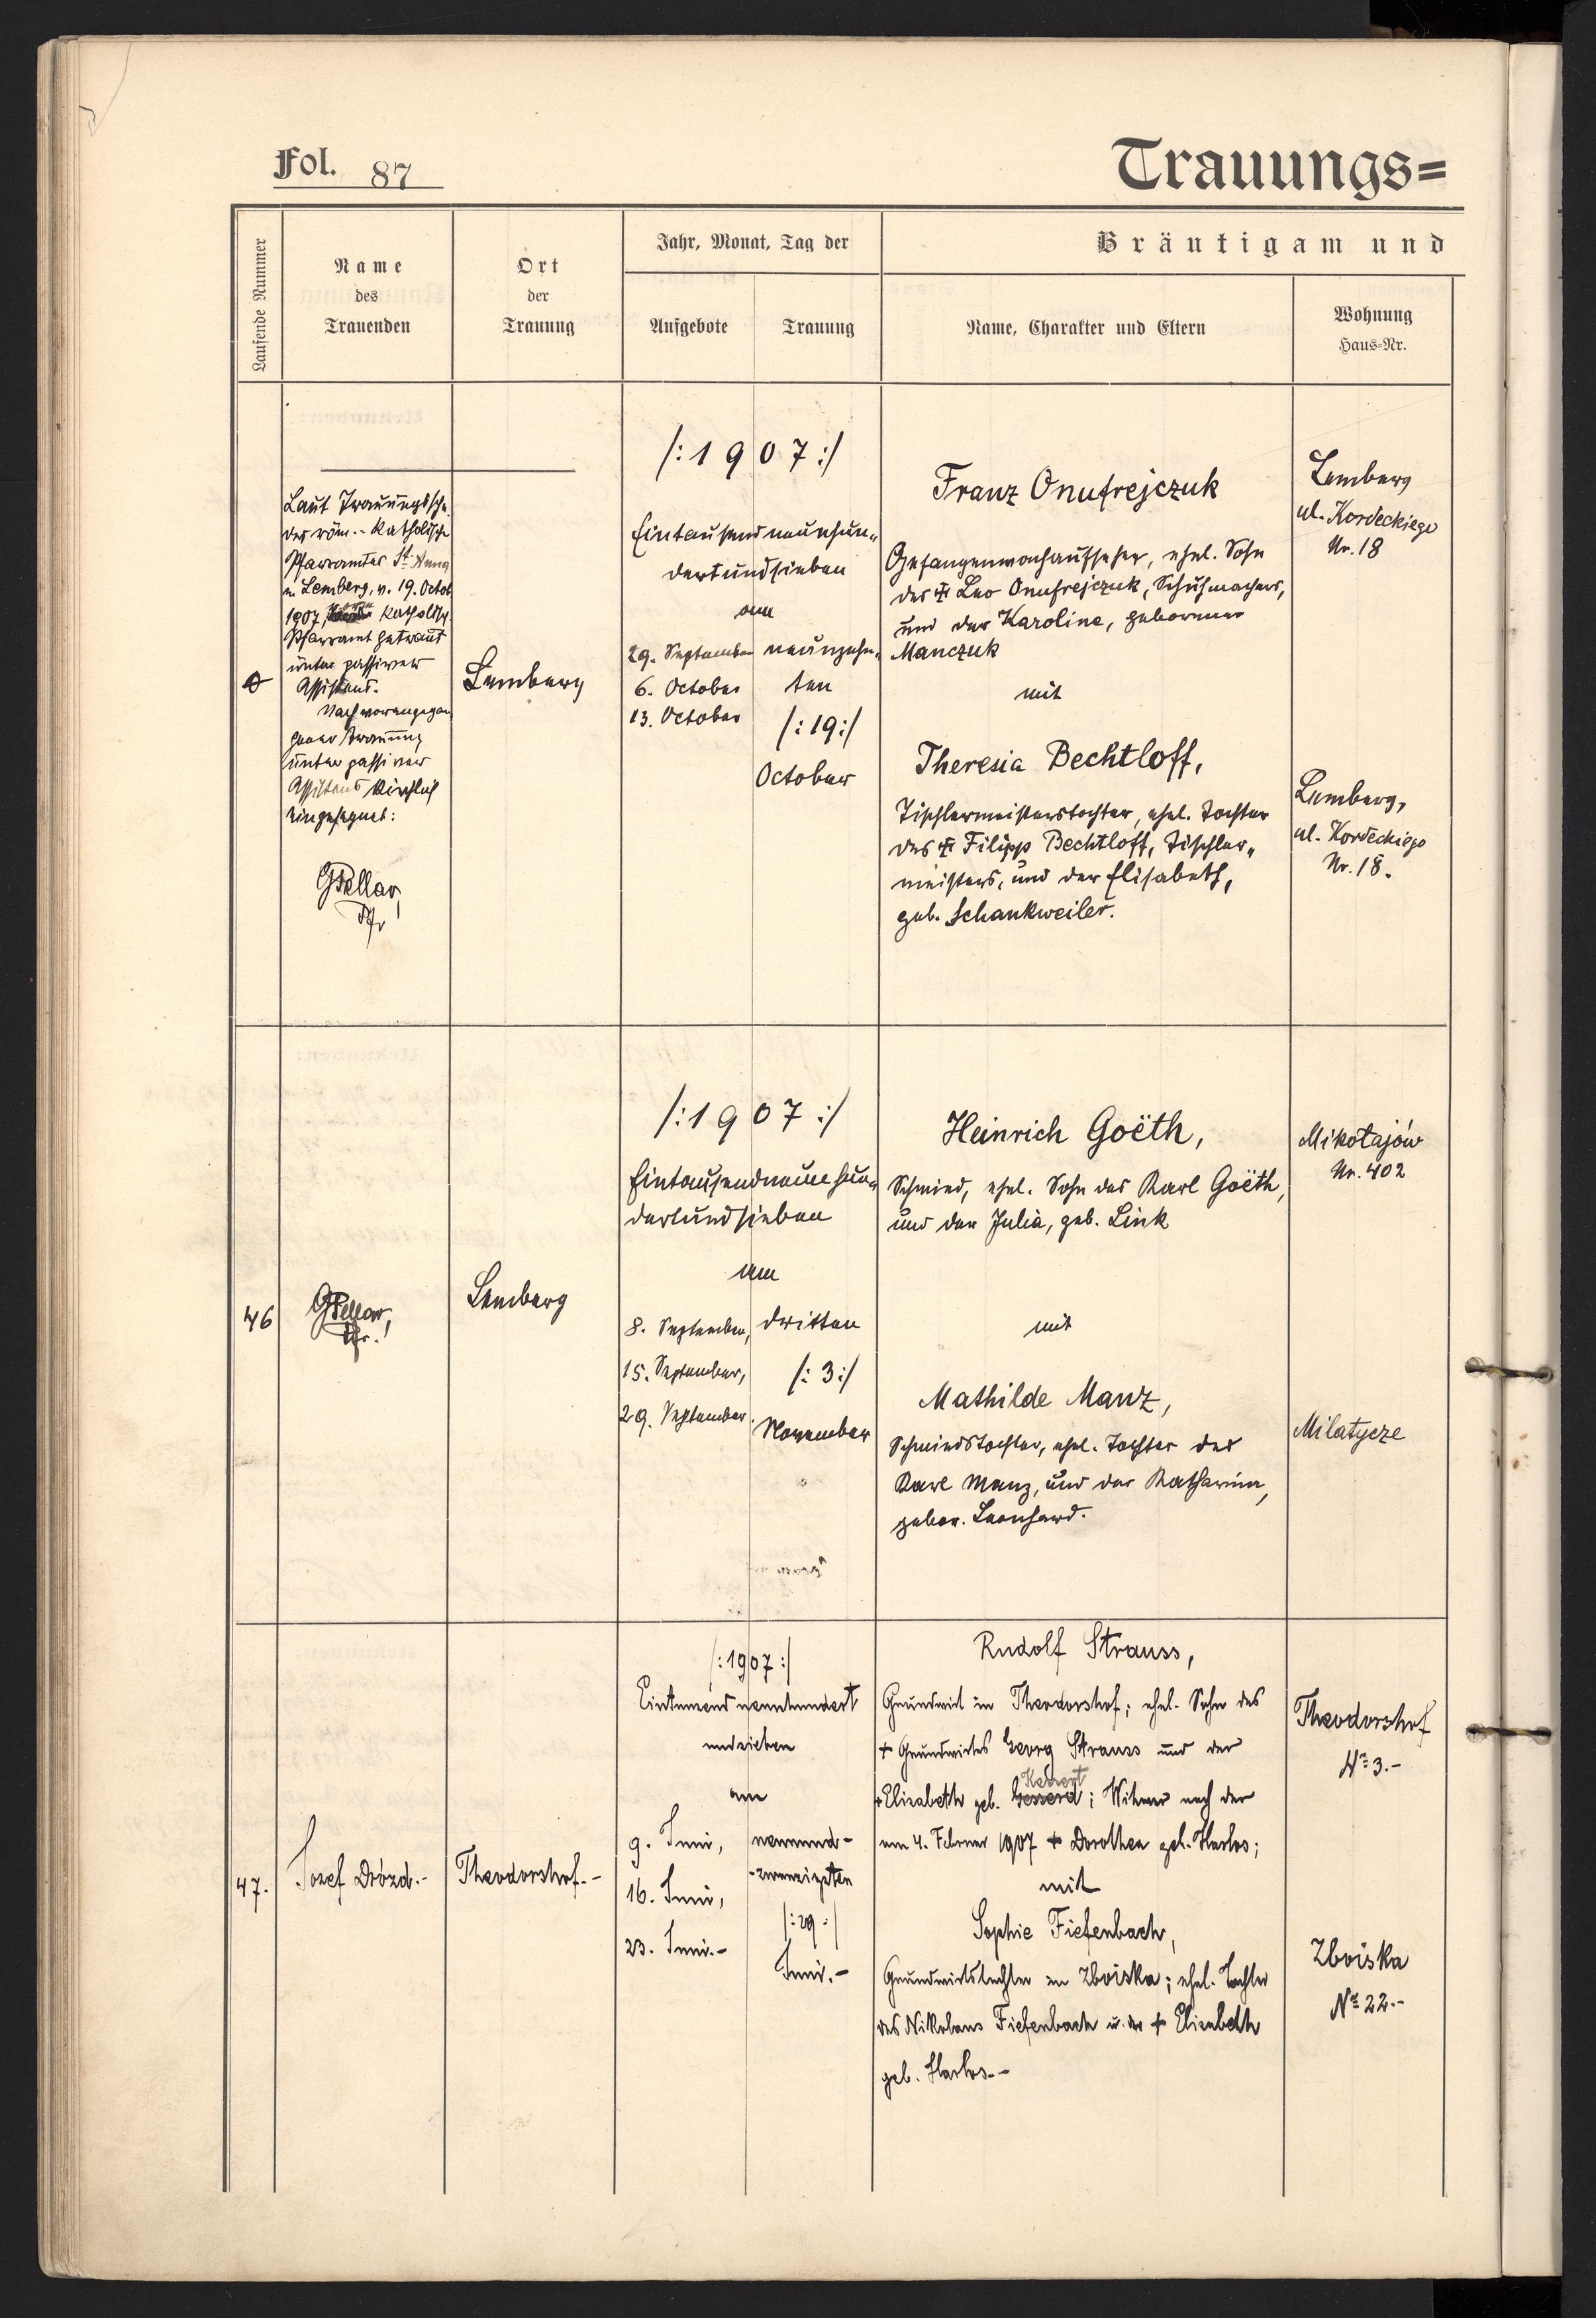 Fol. 87
Trauungs=
Laufende Nummer
Name
des
Trauenden
Ort
der
Trauung
Jahr, Monat, Tag der
Aufgebote
Trauung
Bräutigam und
Name, Charakter und Eltern
Wohnung
Haus=Nr.
Laut Trauungssch.
des röm.-katholische
Pfarramtes St. Anna
in Lemberg, v. 19. Octob
1907, katholisch.
Pfarramt getraut
unter passiver
Assistenz.
Nach vorangegan
gener Trauung
unter passiver
Assistenz kirchlich
eingesegnet:
Pfr!
Lemberg
/: 1907 :/
Eintausendneunhun-
dertundsieben
am
29. September
6. October
13. October
neunzehn-
ten
/: 19 :/
October
Franz Onufrejczuk
Gefangenenhausaufseher, ehel. Sohn
des ☩ Leo Onufrejczuk, Schuhmachers,
und der Karoline, geborener
Manczuk
mit
Theresia Bechtloff,
Tischlermeisterstochter, ehel. Tochter
des ☩ Filipp Bechtloff, Tischler-
meisters, und der Elisabeth,
geb. Schankweiler.
Lemberg
ul. Kordeckiego
Nr. 18
Lemberg,
ul. Kordeckiego
Nr. 18.
46
Pfr.!
Lemberg
/: 1907 :/
Eintausendneunhun-
dertundsieben
am
8. September,
15. September,
29. September.
dritten
/: 3 :/
November
Heinrich Goëth,
Schmied, ehel. Sohn des Karl Goëth,
und der Julia, geb. Link
mit
Mathilde Manz,
Schmiedstochter, ehel. Tochter des
Karl Manz, und der Katharina,
gebor. Leonhard.
Mikołajów
Nr. 402
Milatycze
47.
Jozef Drózd.-
Theodorshof.-
/: 1907 :/
Eintausend neunhundert
undsieben
am
9. Juni,
16. Juni,
23. Juni.-
neunund-
-zwanzigsten
/: 29 :/
Juni.-
Rudolf Strauss,
Grundwirt in Theodorshof; ehel. Sohn des
+ Grundwirtes Georg Strauss und der
Kessert
+ Elisabeth geb. Gesserd; Witwer nach der
am 4. Februar 1907 + Dorothea geb. Harlos;
mit
Sophie Tiefenbach,
Grundwirtstochter in Zboiska; ehel. Tochter
des Nikolaus Tiefenbach u. der + Elisabeth
geb. Harlos.-
Theodorshof
Nr 3.-
Zboiska
Nr 22.-